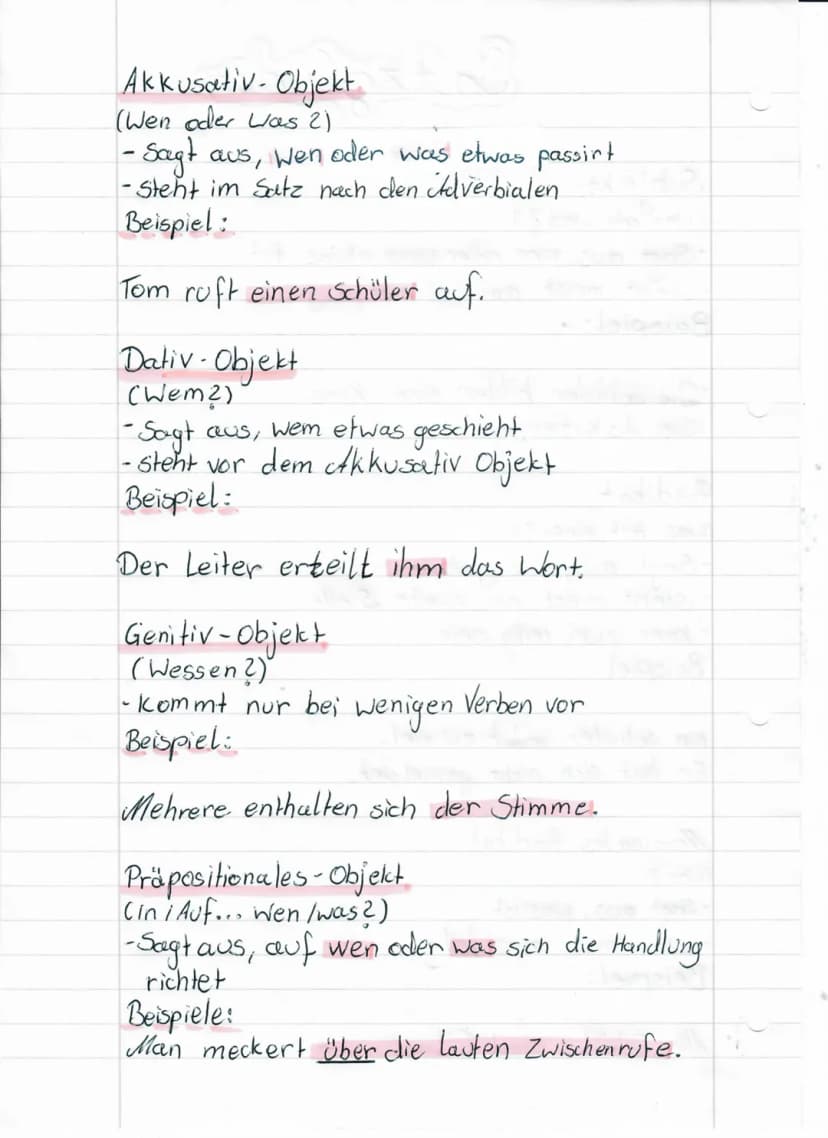 Akkusativ-Objekt
(Wen oder Was?)
- Sagt aus, wen oder was etwas passirt
- Steht im Satz nach den Adverbialen
Beispiel:
Tom ruft einen Schüler auf.
Dativ-Objekt
(Wem?)
- Sagt aus, wem etwas geschieht
- steht vor dem Akkusativ Objekt
Beispiel:
Der Leiter erteilt ihm das Wort.
Genitiv-Objekt
(Wessen?)
- kommt nur bei wenigen Verben vor
Beispiel:
Mehrere enthalten sich der Stimme.
Präpositionales-Objekt
(in / Auf... Wen/was?)
- Sagt aus, auf wen oder was sich die Handlung
richtet
Beispiele:
Man meckert über die lauten Zwischenrufe.